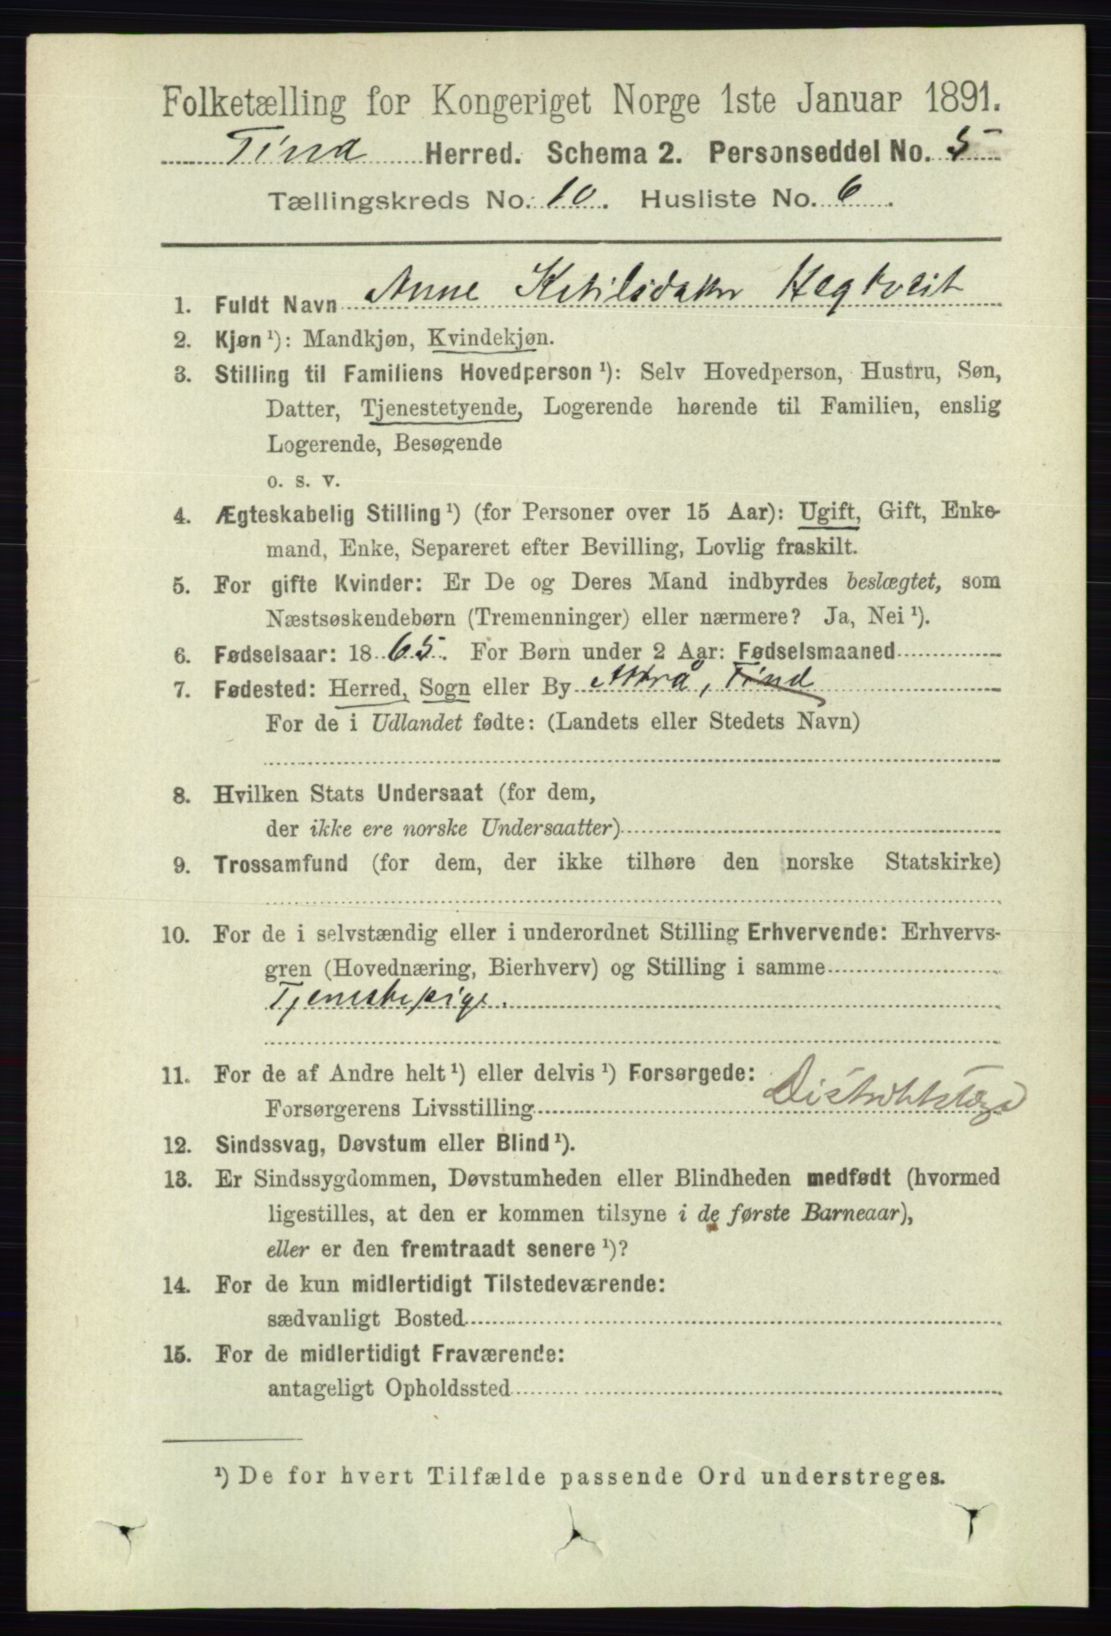 Folketælling for Kongeriget Norge 1ste Januar 1891.
Tind Herred. Schema 2. Personseddel No. 5
Tællingskreds No. 10. Husliste No. 6.
1. Fuldt Navn Anne Ketilsdatter Hegtveit
2. Kjøn ¹): Mandkjøn, Kvindekjøn.
3. Stilling til Familiens Hovedperson ¹): Selv Hovedperson, Hustru, Søn,
Datter, Tjenestetyende, Logerende hørende til Familien, enslig
Logerende, Besøgende
o. s. v.
4. Ægteskabelig Stilling ¹) (for Personer over 15 Aar): Ugift, Gift, Enke-
mand, Enke, Separeret efter Bevilling, Lovlig fraskilt.
5. For gifte Kvinder: Er De og Deres Mand indbyrdes beslægtet, som
Næstsøskendebørn (Tremenninger) eller nærmere? Ja, Nei ¹).
6. Fødselsaar: 1865. For Børn under 2 Aar: Fødselsmaaned
7. Fødested: Herred, Sogn eller By Attrå, Tind
For de i Udlandet fødte: (Landets eller Stedets Navn)
8. Hvilken Stats Undersaat (for dem,
der ikke ere norske Undersaatter)
9. Trossamfund (for dem, der ikke tilhøre den norske Statskirke)
10. For de i selvstændig eller i underordnet Stilling Erhvervende: Erhvervs-
gren (Hovednæring, Bierhverv) og Stilling i samme
Tjenestepige.
11. For de af Andre helt ¹) eller delvis ¹) Forsørgede:
Forsørgerens Livsstilling
12. Sindssvag, Døvstum eller Blind ¹).
13. Er Sindssygdommen, Døvstumheden eller Blindheden medfødt (hvormed
ligestilles, at den er kommen tilsyne i de første Barneaar),
eller er den fremtraadt senere ¹)?
14. For de kun midlertidigt Tilstedeværende:
sædvanligt Bosted
15. For de midlertidigt Fraværende:
antageligt Opholdssted
¹) De for hvert Tilfælde passende Ord understreges.